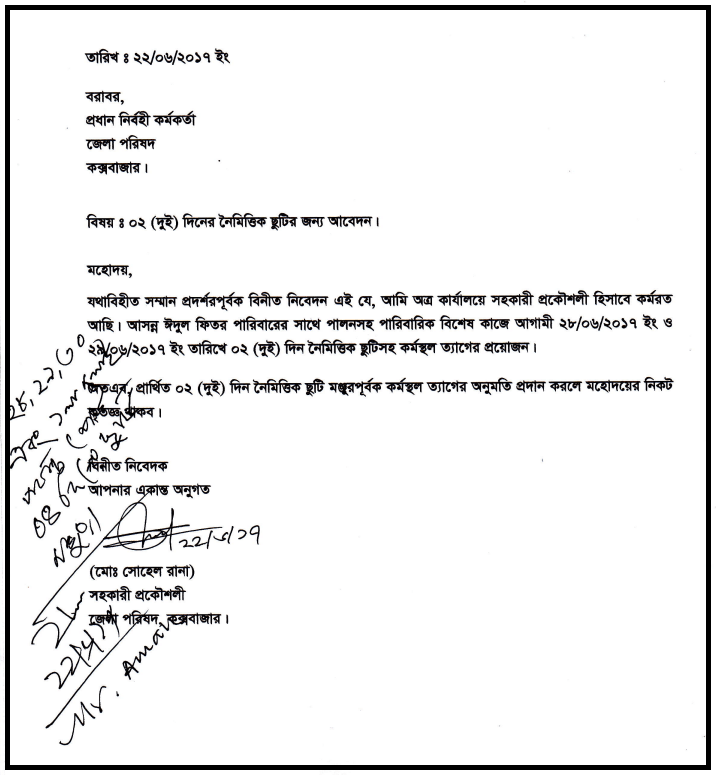 তারিখ ঃ ২২/০৬/২০১৭ ইং
বরাবর,
প্রধান নির্বহী কর্মকর্তা
জেলা পরিষদ
কক্সবাজার।
বিষয় ঃ ০২ (দুই) দিনের নৈমিত্তিক ছুটির জন্য আবেদন।
মহোদয়,
যথাবিহীত সম্মান প্রদর্শরপূর্বক বিনীত নিবেদন এই যে, আমি অত্র কার্যালয়ে সহকারী প্রকৌশলী হিসাবে কর্মরত
আছি। আসন্ন ঈদুল ফিতর পারিবারের সাথে পালনসহ পারিবারিক বিশেষ কাজে আগামী ২৮/০৬/২০১৭ ইং ও
২৯/০৬/২০১৭ ইং তারিখে ০২ (দুই) দিন নৈমিত্তিক ছুটিসহ কর্মস্থল ত্যাগের প্রয়োজন।
অতএব, প্রার্থিত ০২ (দুই) দিন নৈমিত্তিক ছুটি মঞ্জুরপূর্বক কর্মস্থল ত্যাগের অনুমতি প্রদান করলে মহোদয়ের নিকট
কৃতজ্ঞ থাকব।
২৮, ২৯, ৩০
এবং
বিনীত নিবেদক
আপনার একান্ত অনুগত
২২/৬/১৭
(মোঃ সোহেল রানা)
সহকারী প্রকৌশলী
জেলা পরিষদ, কক্সবাজার।
Mr.